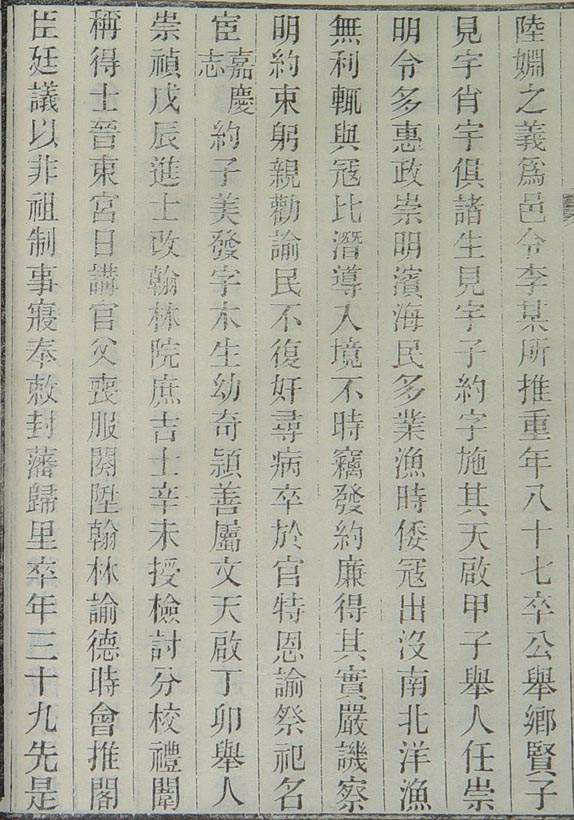 陸婣之義爲邑令李某所推重年八十七卒公舉鄉賢子
見宇肖宇俱諸生見宇子約字施其天啟甲子舉人任崇
明令多惠政崇明濱海民多業漁時倭冦出沒南北洋漁
無利輒與冦比潛導入境不時竊發約廉得其實嚴譏察
明約束躬親勸諭民不復奸尋病卒於官特恩諭祭祀名
宦嘉慶志約子美發字木生幼奇頴善屬文天啟丁卯舉人
崇禎戊辰進士改翰林院庶吉士辛未授檢討分校禮闈
稱得士晉東宮日講官父喪服闋陞翰林諭德時會推閣
臣廷議以非祖制事寢奉敕封藩歸里卒年三十九先是